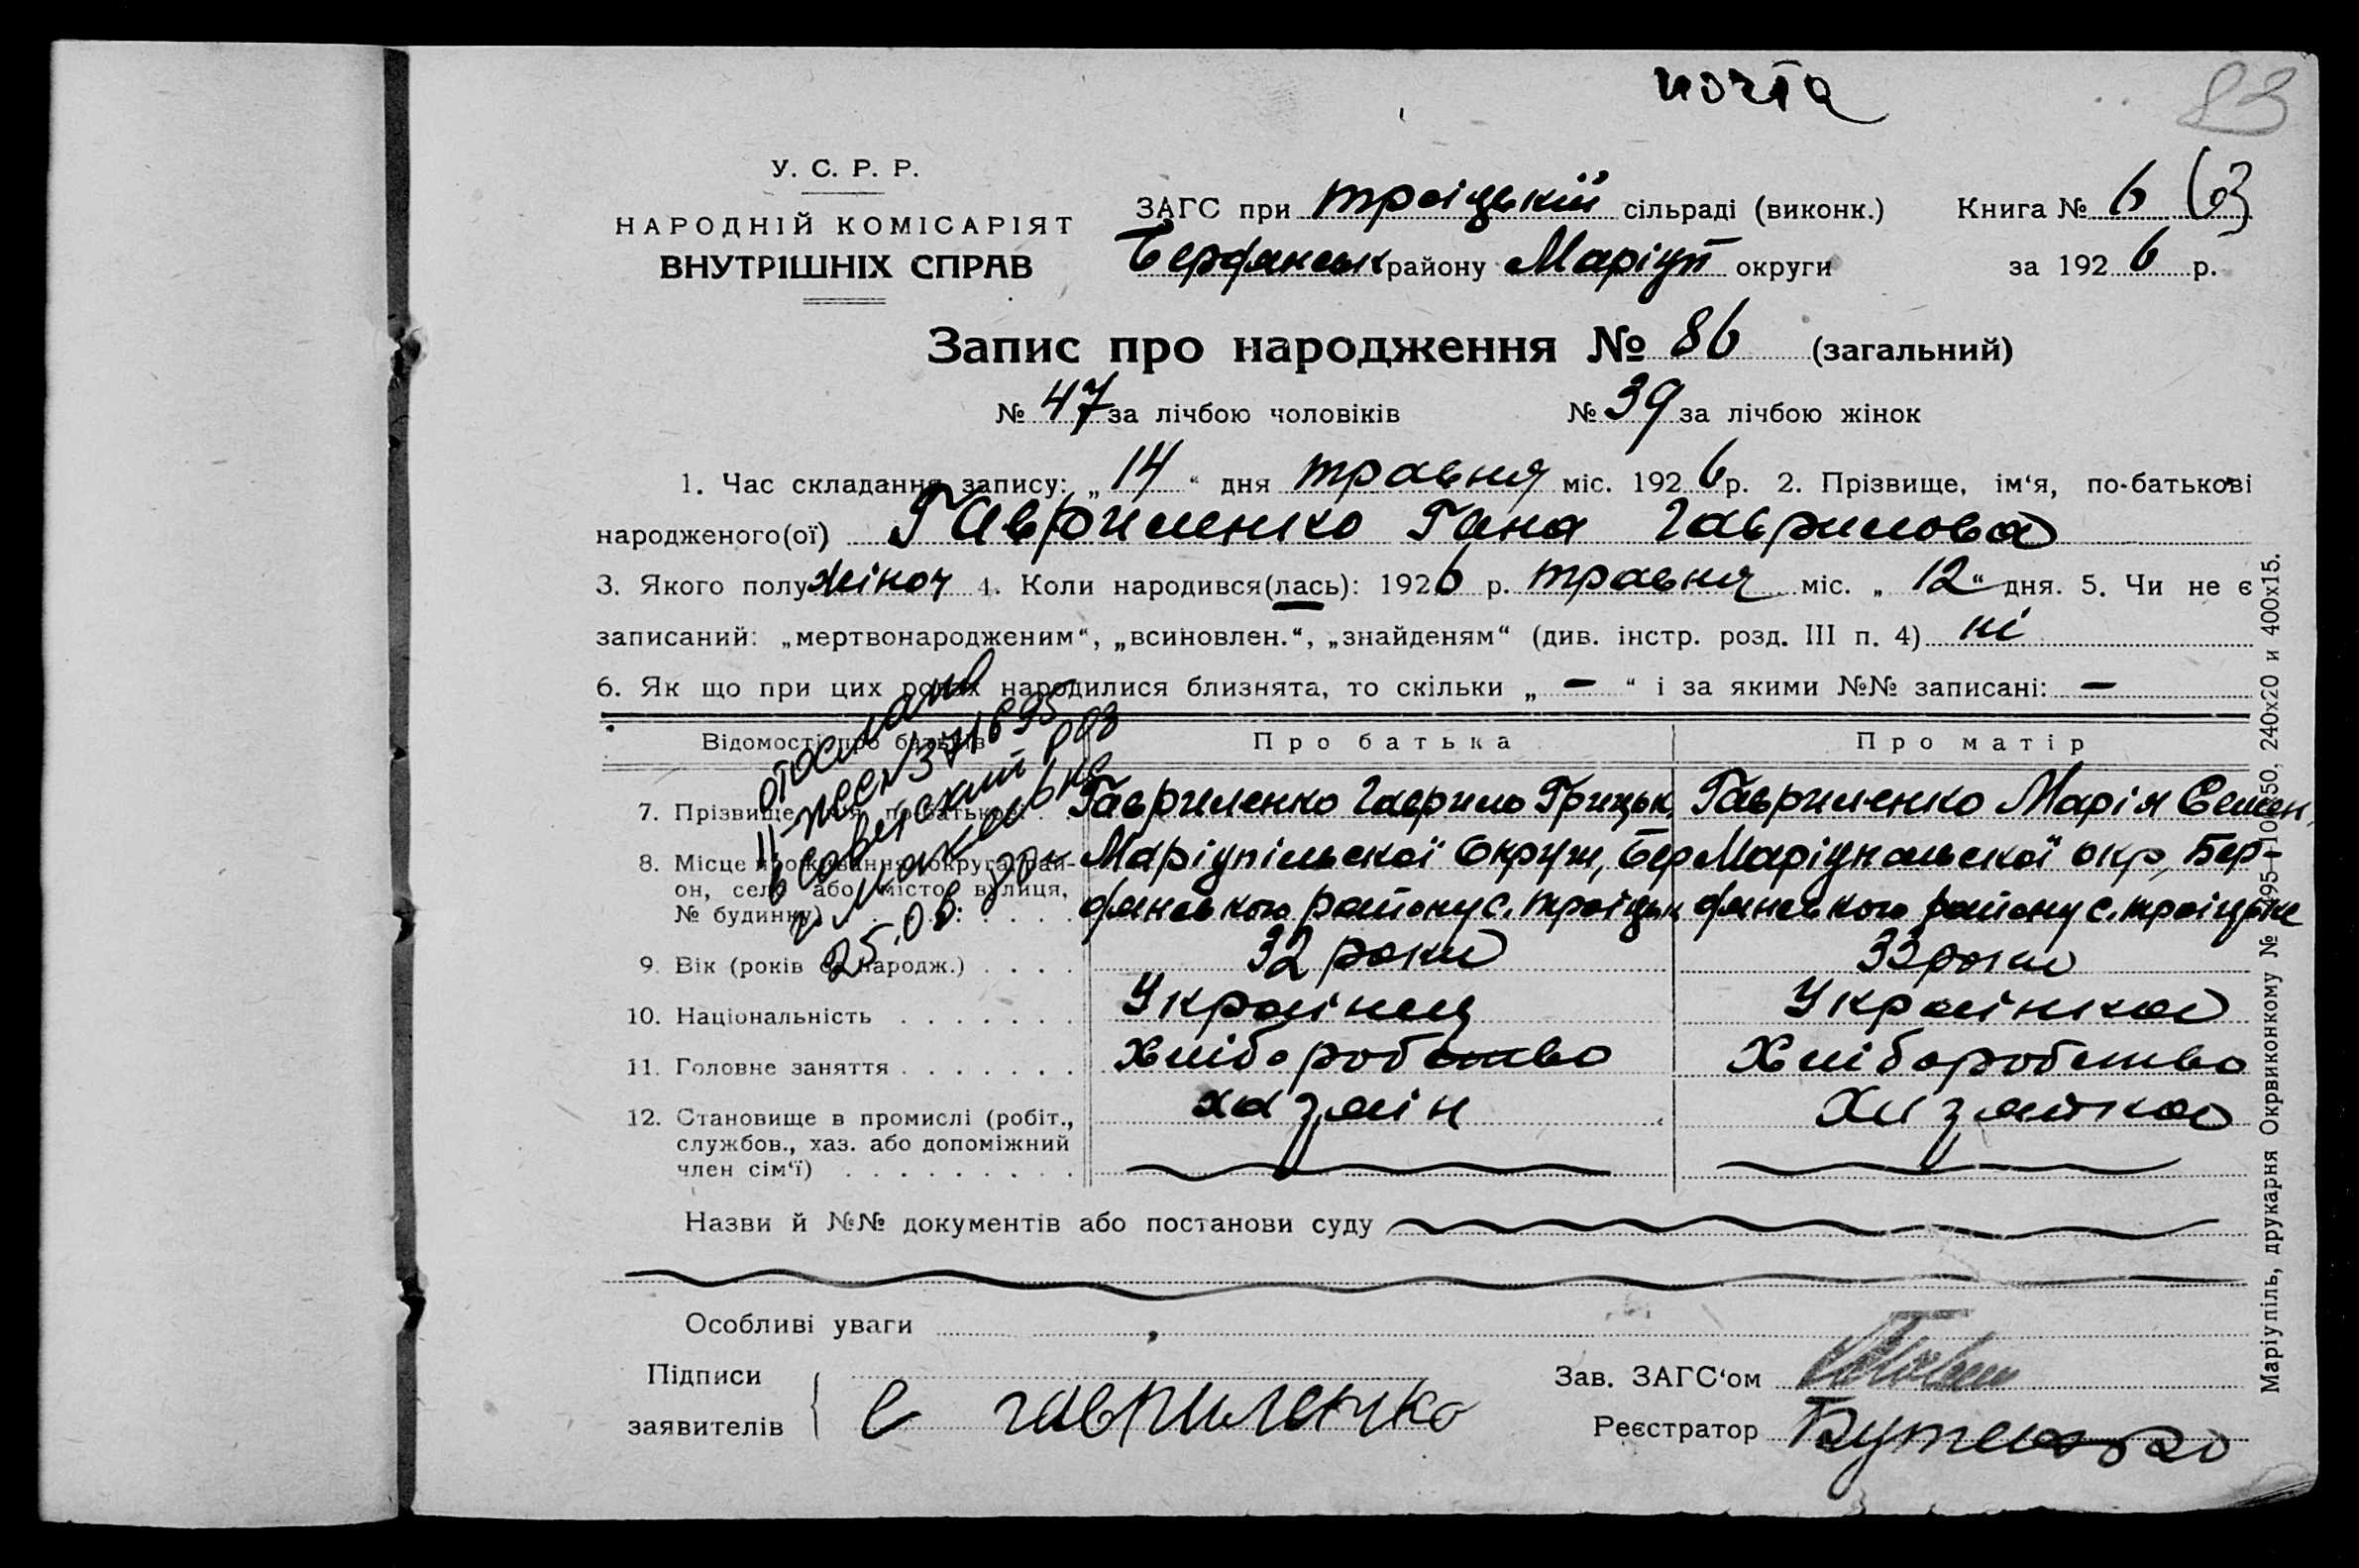 почта
83
У. С. Р. Р.
НАРОДНІЙ КОМІСАРІЯТ
ВНУТРІШНІХ СПРАВ
ЗАГС при троіцькій сільраді (виконк.) Книга № 6 (63)
Бердянськ району Маріуп округи за 1926 р.
Запис про народження № 86 (загальний)
№ 47 за лічбою чоловіків № 39 за лічбою жінок
1. Час складання запису: „14“ дня травня міс. 1926 р. 2. Прізвище, ім‘я, по-батькові
народженого(ої) Гавриленко Гана Гаврилова
3. Якого полу жіноч 4. Коли народився(лась): 1926 р. травня міс. „12“ дня. 5. Чи не є
записаний: „мертвонародженим“, „всиновлен.“, „знайденям“ (див. інстр. розд. III п. 4) ні
6. Як що при цих родах народилися близнята, то скільки „ — “ і за якими №№ записані: —
Відомості про батьків Про батька Про матір
7. Прізвище, ім‘я, по-батькові Гавриленко Гаврило Грицьк. Гавриленко Марія Семен.
8. Місце проживання (округа, рай- Маріупільскої Округи, Бер Маріупольскої окр, Бер-
он, село або місто, вулиця, дянського району с. троіцьк дянського району с. троіцьке
№ будинку)
9. Вік (років од народж.) 32 роки 33 роки
10. Національність Украінец Украінка
11. Головне заняття Хліборобство Хліборобство
12. Становище в промислі (робіт., хазяін Хазяйка
службов., хаз. або допоміжний
член сім‘ї)
отослано
371695
в Советский
г. Макеевка
25.08
Назви й №№ документів або постанови суду
Особливі уваги
Підписи
заявителів
Г Гавриленко
Зав. ЗАГС‘ом
Реєстратор Бутенко
Маріупіль, друкарня Окрвиконкому № 495-10050, 240х20 и 400х15.